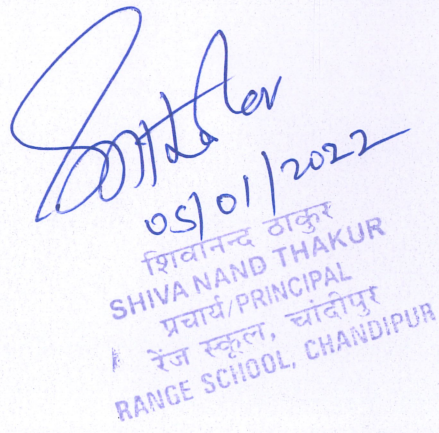 05/01/2022
शिवानन्द ठाकुर
SHIVA NAND THAKUR
प्रचार्य/PRINCIPAL
रेंज स्कूल, चांदीपुर
RANGE SCHOOL, CHANDIPUR